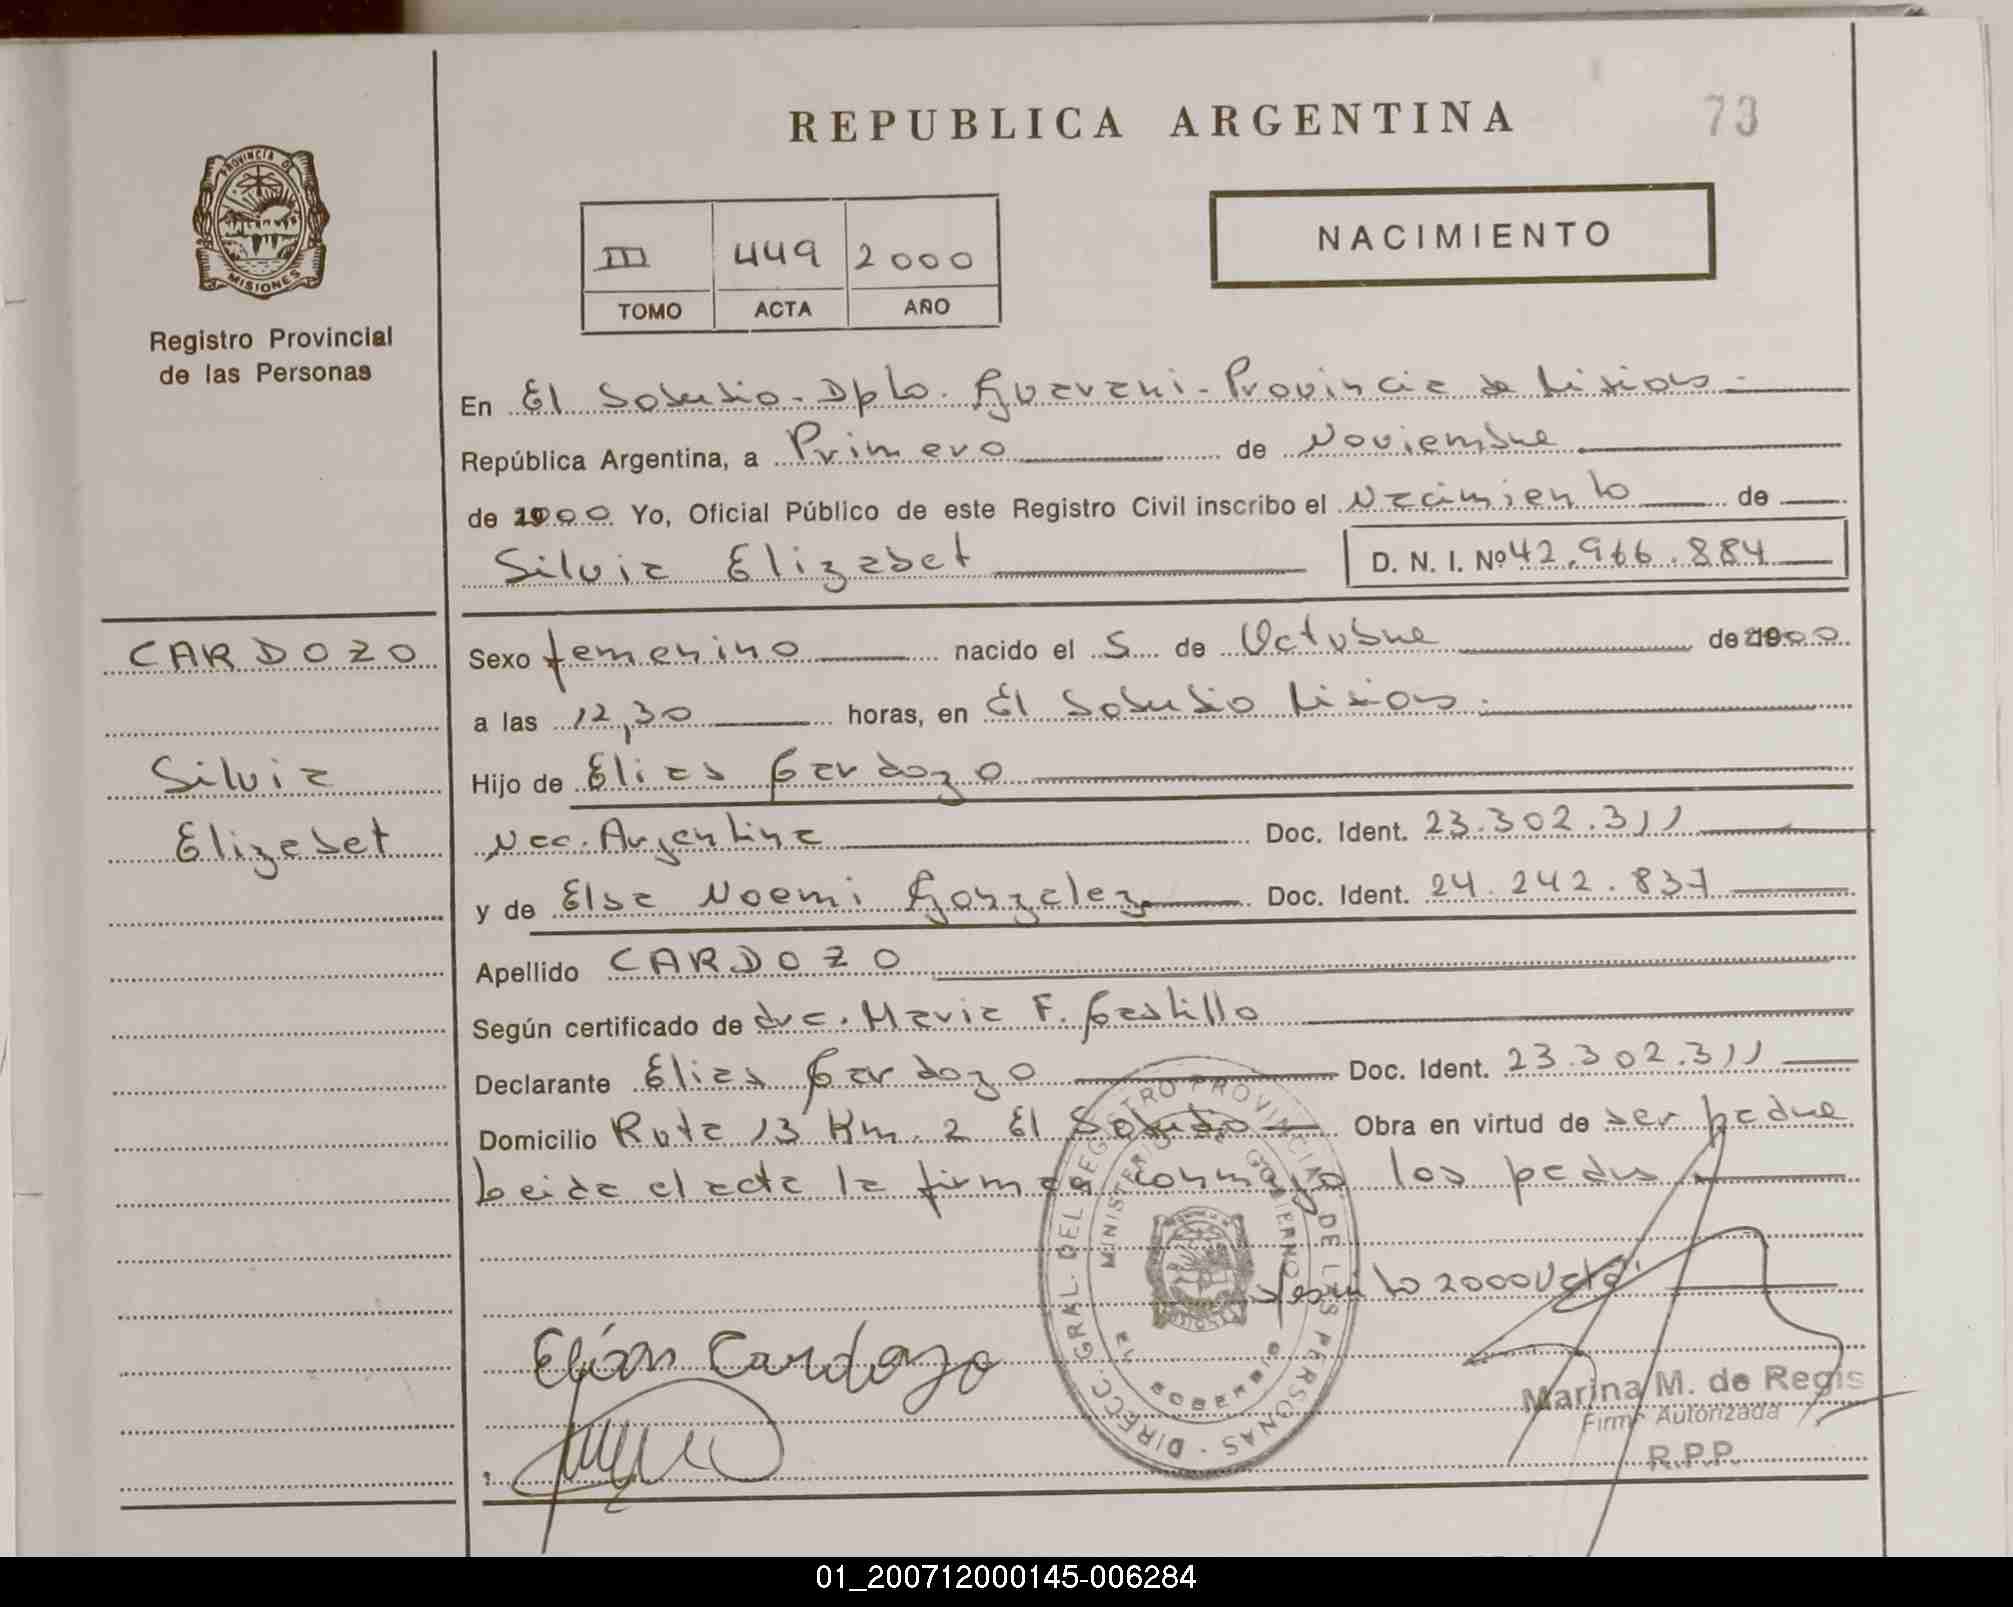 REPUBLICA ARGENTINA
73
PROVINCIA DE
MISIONES
Registro Provincial
de las Personas
III 449 2000
TOMO ACTA AÑO
NACIMIENTO
En El Soberbio - Dpto. Guarani - Provincia de Misiones -
República Argentina, a Primero de Noviembre
de 2000 Yo, Oficial Público de este Registro Civil inscribo el Nacimiento de
Silvia Elizabet D. N. I. Nº 42.966.884
CARDOZO
Silvia
Elizabet
Sexo femenino nacido el 5 de Octubre de 2000
a las 12,30 horas, en El Soberbio Misiones.
Hijo de Elias Cardozo
Nac. Argentina Doc. Ident. 23.302.311
y de Elsa Noemi Gonzalez Doc. Ident. 24.242.837
Apellido CARDOZO
Según certificado de dra. Maria F. Castillo
Declarante Elias Cardozo Doc. Ident. 23.302.311
Domicilio Ruta 13 Km. 2 El Soberbio Obra en virtud de ser padre
Leida el acta la firman conmigo los padres
2000 Vale
Elías Cardozo
DIRECC. GRAL. DEL REGISTRO PROVINCIAL DE LAS PERSONAS
MINISTERIO DE GOBIERNO
EL SOBERBIO
Marina M. de Regis
Firma Autorizada
R.P.P.
01_200712000145-006284